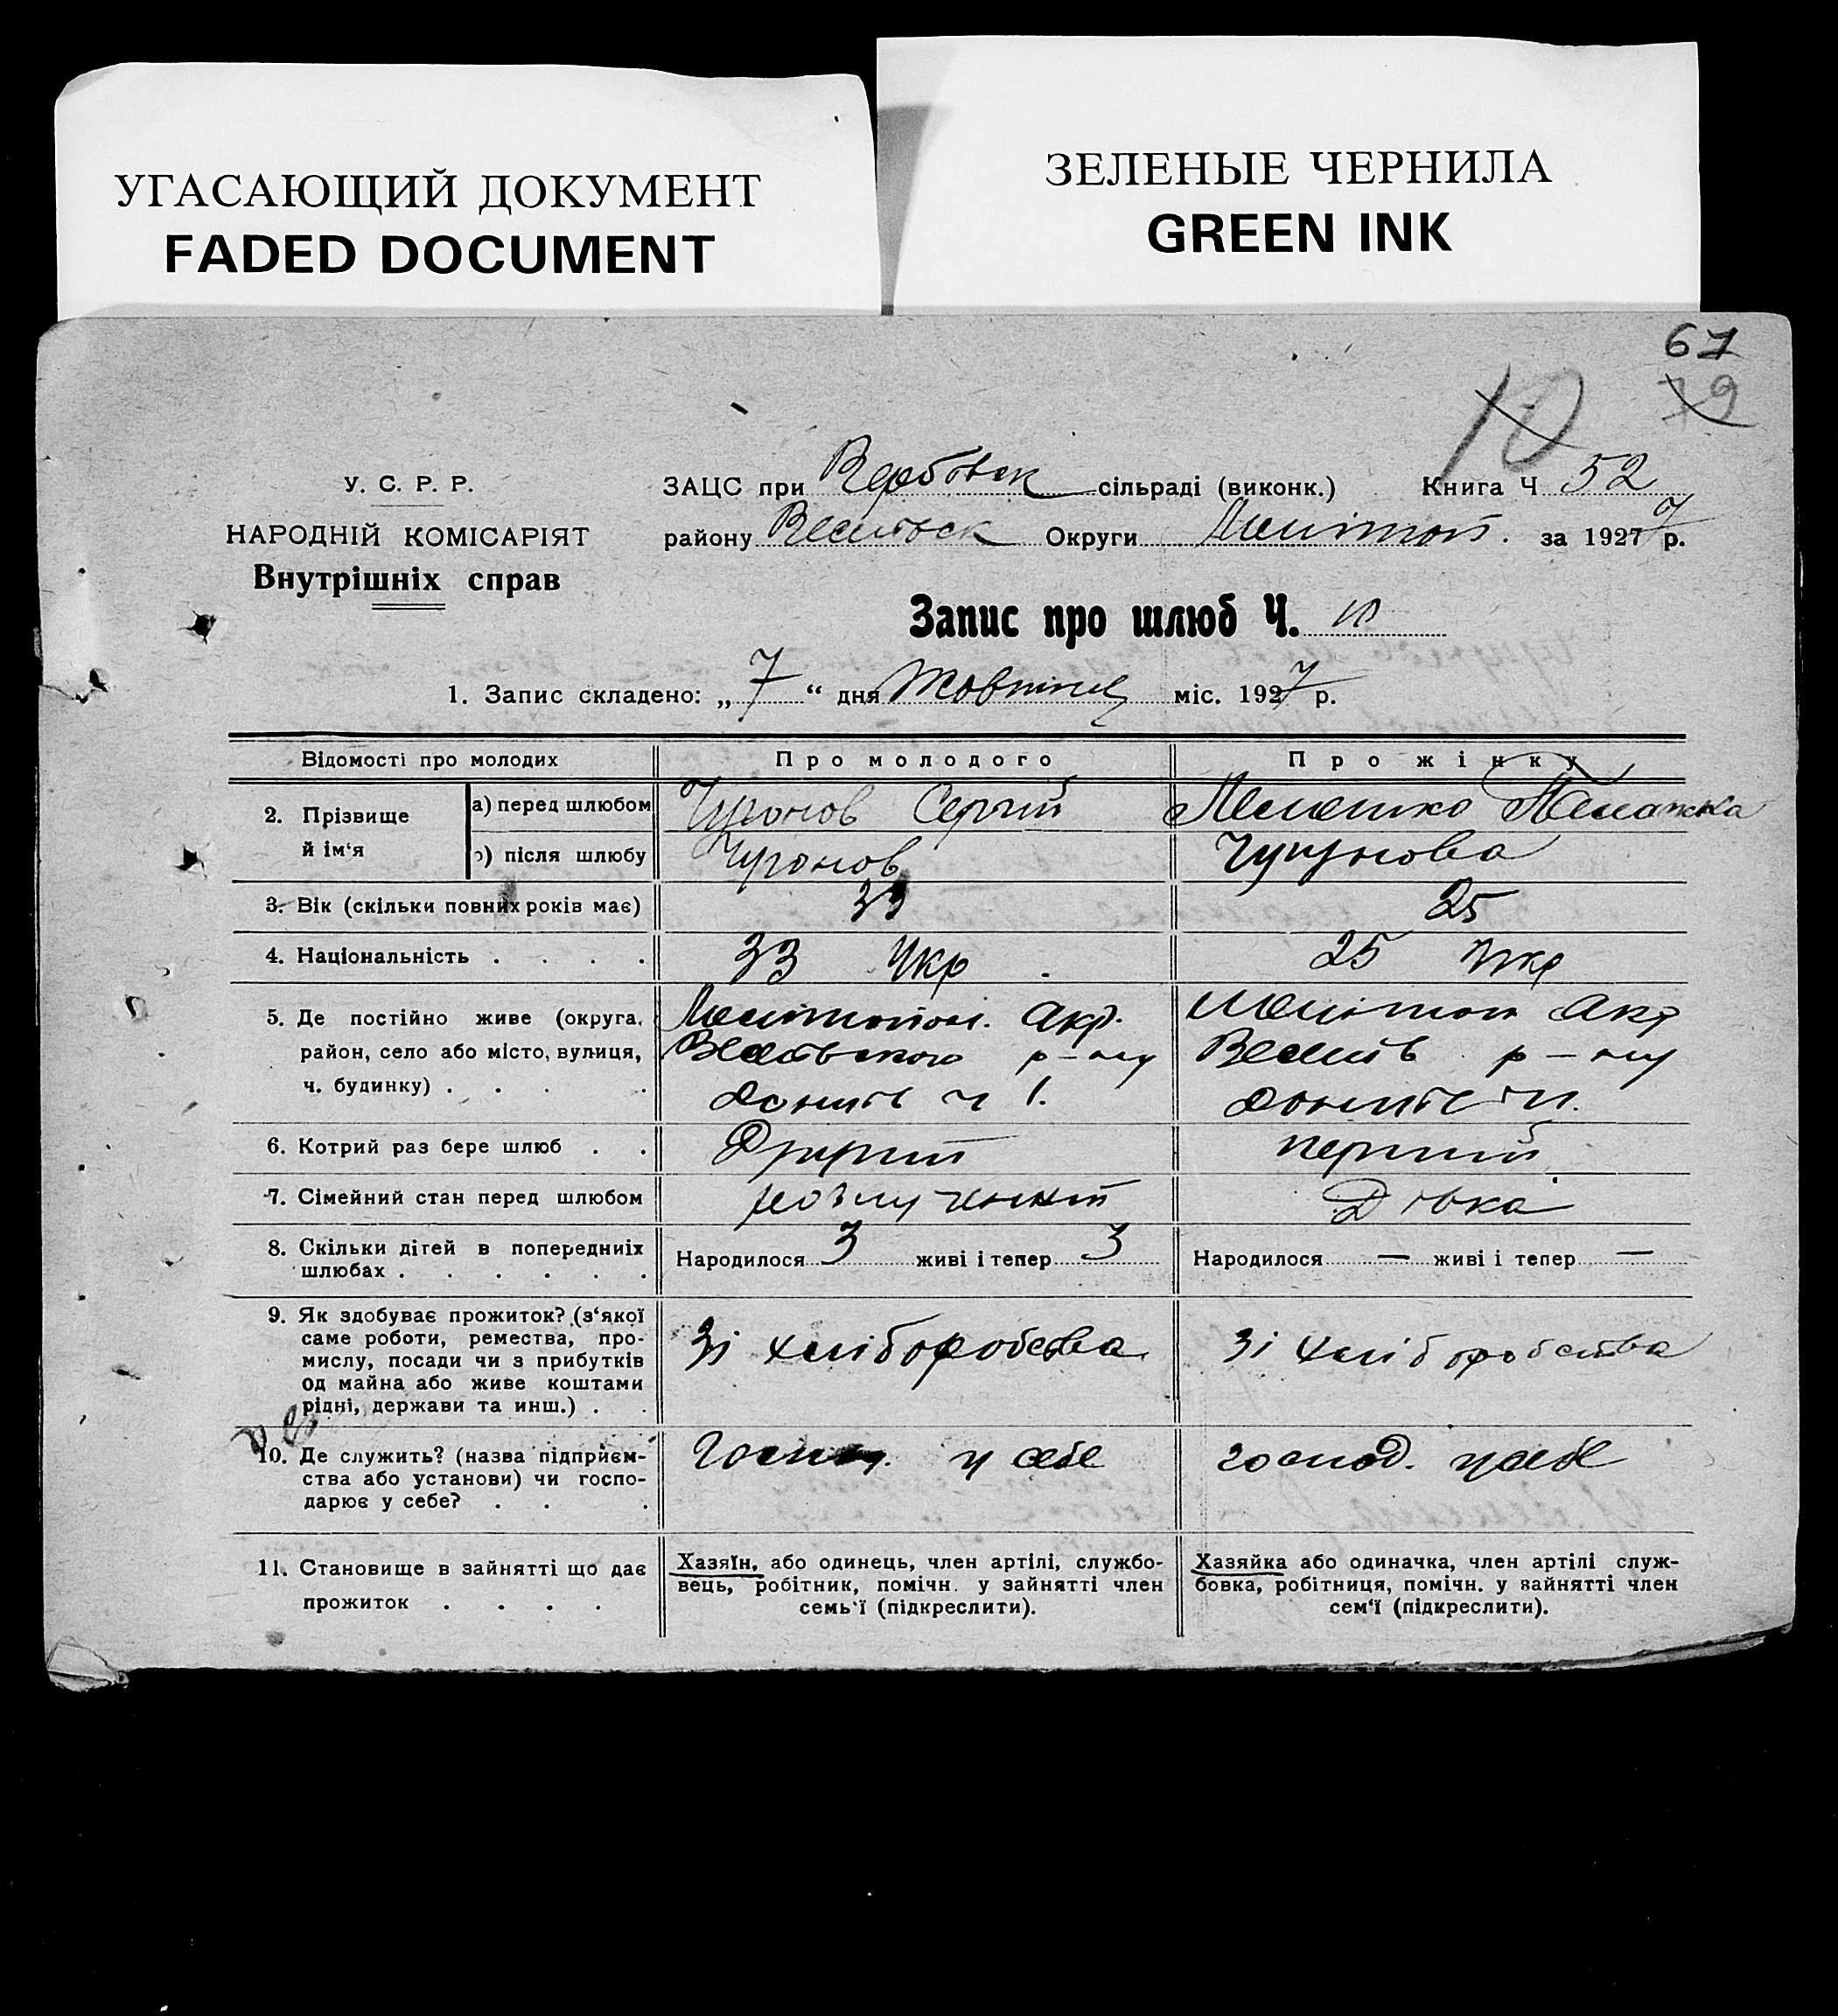 УГАСАЮЩИЙ ДОКУМЕНТ
FADED DOCUMENT
ЗЕЛЕНЫЕ ЧЕРНИЛА
GREEN INK
67
79
10
У. С. Р. Р.
НАРОДНІЙ КОМІСАРІЯТ
Внутрішніх справ
ЗАЦС при Вербовск сільраді (виконк.) Книга Ч 52
району Весельск Округи Мелітоп. за 1927 7 р.
Запис про шлюб Ч. 10
1. Запис складено: „ 7 “ дня Жовтня міс. 1927 р.
Відомості про молодих Про молодого Про жінку
2. Прізвище й ім‘я
а) перед шлюбом Сергій
після шлюбу
3. Вік (скільки повних років має) 33 25
4. Національність . . . . 33 Укр . 25 Укр
5. Де постійно живе (округа, Мелітопол. Акр. Меліттоп Акр
район, село або місто, вулиця, р-ну Веселів р-ну
ч. будинку) . . . . ч 1.
6. Котрий раз бере шлюб . . Другий перший
7. Сімейний стан перед шлюбом розлучений Дівка
8. Скільки дітей в попередниіх
шлюбах . . . . . .
Народилося 3 живі і тепер 3 Народилося — живі і тепер —
9. Як здобуває прожиток? (з‘якої
саме роботи, ремества, про-
мислу, посади чи з прибутків
од майна або живе коштами
рідні, держави та инш.) . .
Зі хліборобства Зі хліборобства
10. Де служить? (назва підприєм-
ства або установи) чи госпо-
дарює у себе? . . .
у себе господ. у себе
11. Становище в зайнятті що дає
прожиток . . . .
Хазяїн, або одинець, член артілі, службо-
вець, робітник, помічн. у зайнятті член
семь‘ї (підкреслити).
Хазяйка або одиначка, член артілі служ-
бовка, робітниця, помічн. у зайнятті член
сем‘ї (підкреслити).